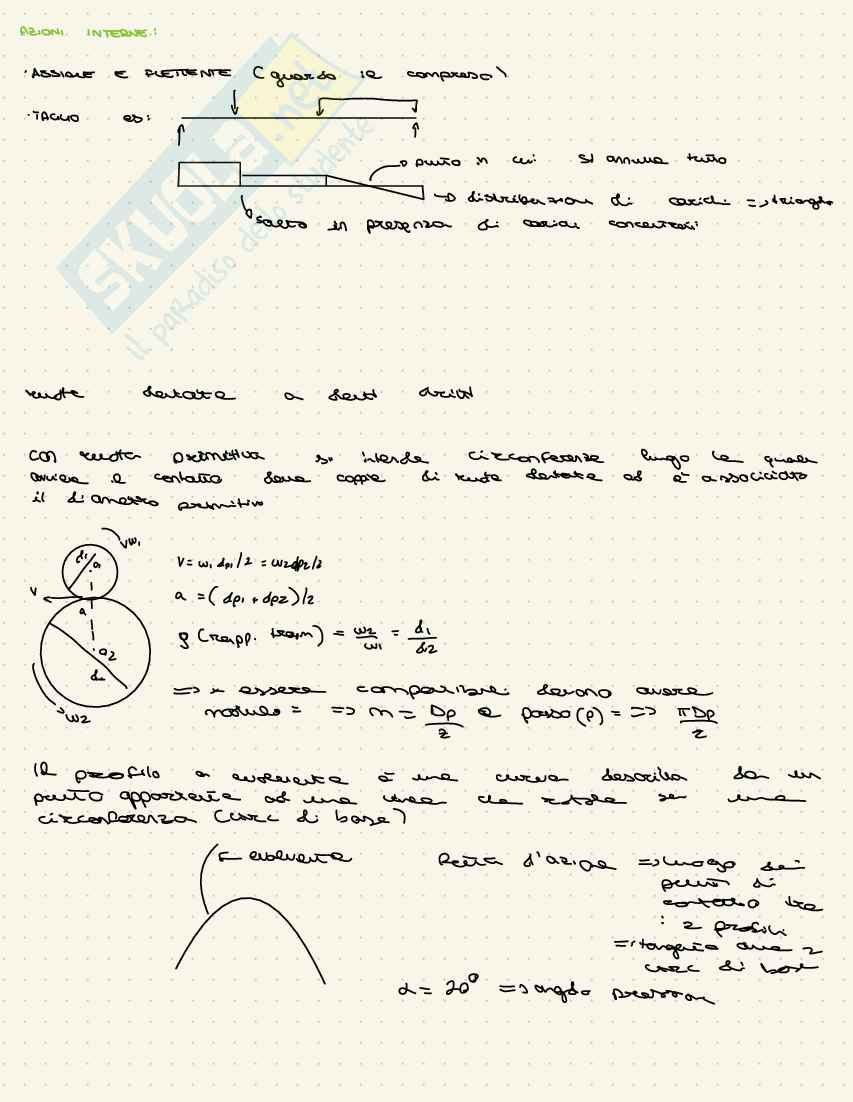 AZIONI INTERNE:
·ASSIALE E FLETTENTE (guardo le compreso)
·TAGLIO es:
punto in cui si annulla tutto
distribuzioni di carichi => triangolo
salto in presenza di carichi concentrati
SKUOLA.net
il paradiso dello studente
ruote dentate a denti dritti
con ruota primitiva si intende circonferenza lungo la quale
avviene il contatto della coppia di ruote dentate ad è associato
il diametro primitivo
ω1
d1
o1
V
a
o2
ω2
V = ω1 dp1/2 = ω2 dp2/2
a = (dp1 + dp2)/2
ρ (rapp. trasm) = ω2/ω1 = d1/d2
=> x essere compatibili devono avere
modulo = => m = Dp/z e passo(p) = => πDp/z
Il profilo a evolvente è una curva descritta da un
punto appartenente ad una linea che rotola su una
circonferenza (circ di base)
evolvente
Retta d'azione => luogo dei
punti di
contatto tra
i 2 profili
=> tangente alle 2
circ di base
α = 20° => angolo pressione